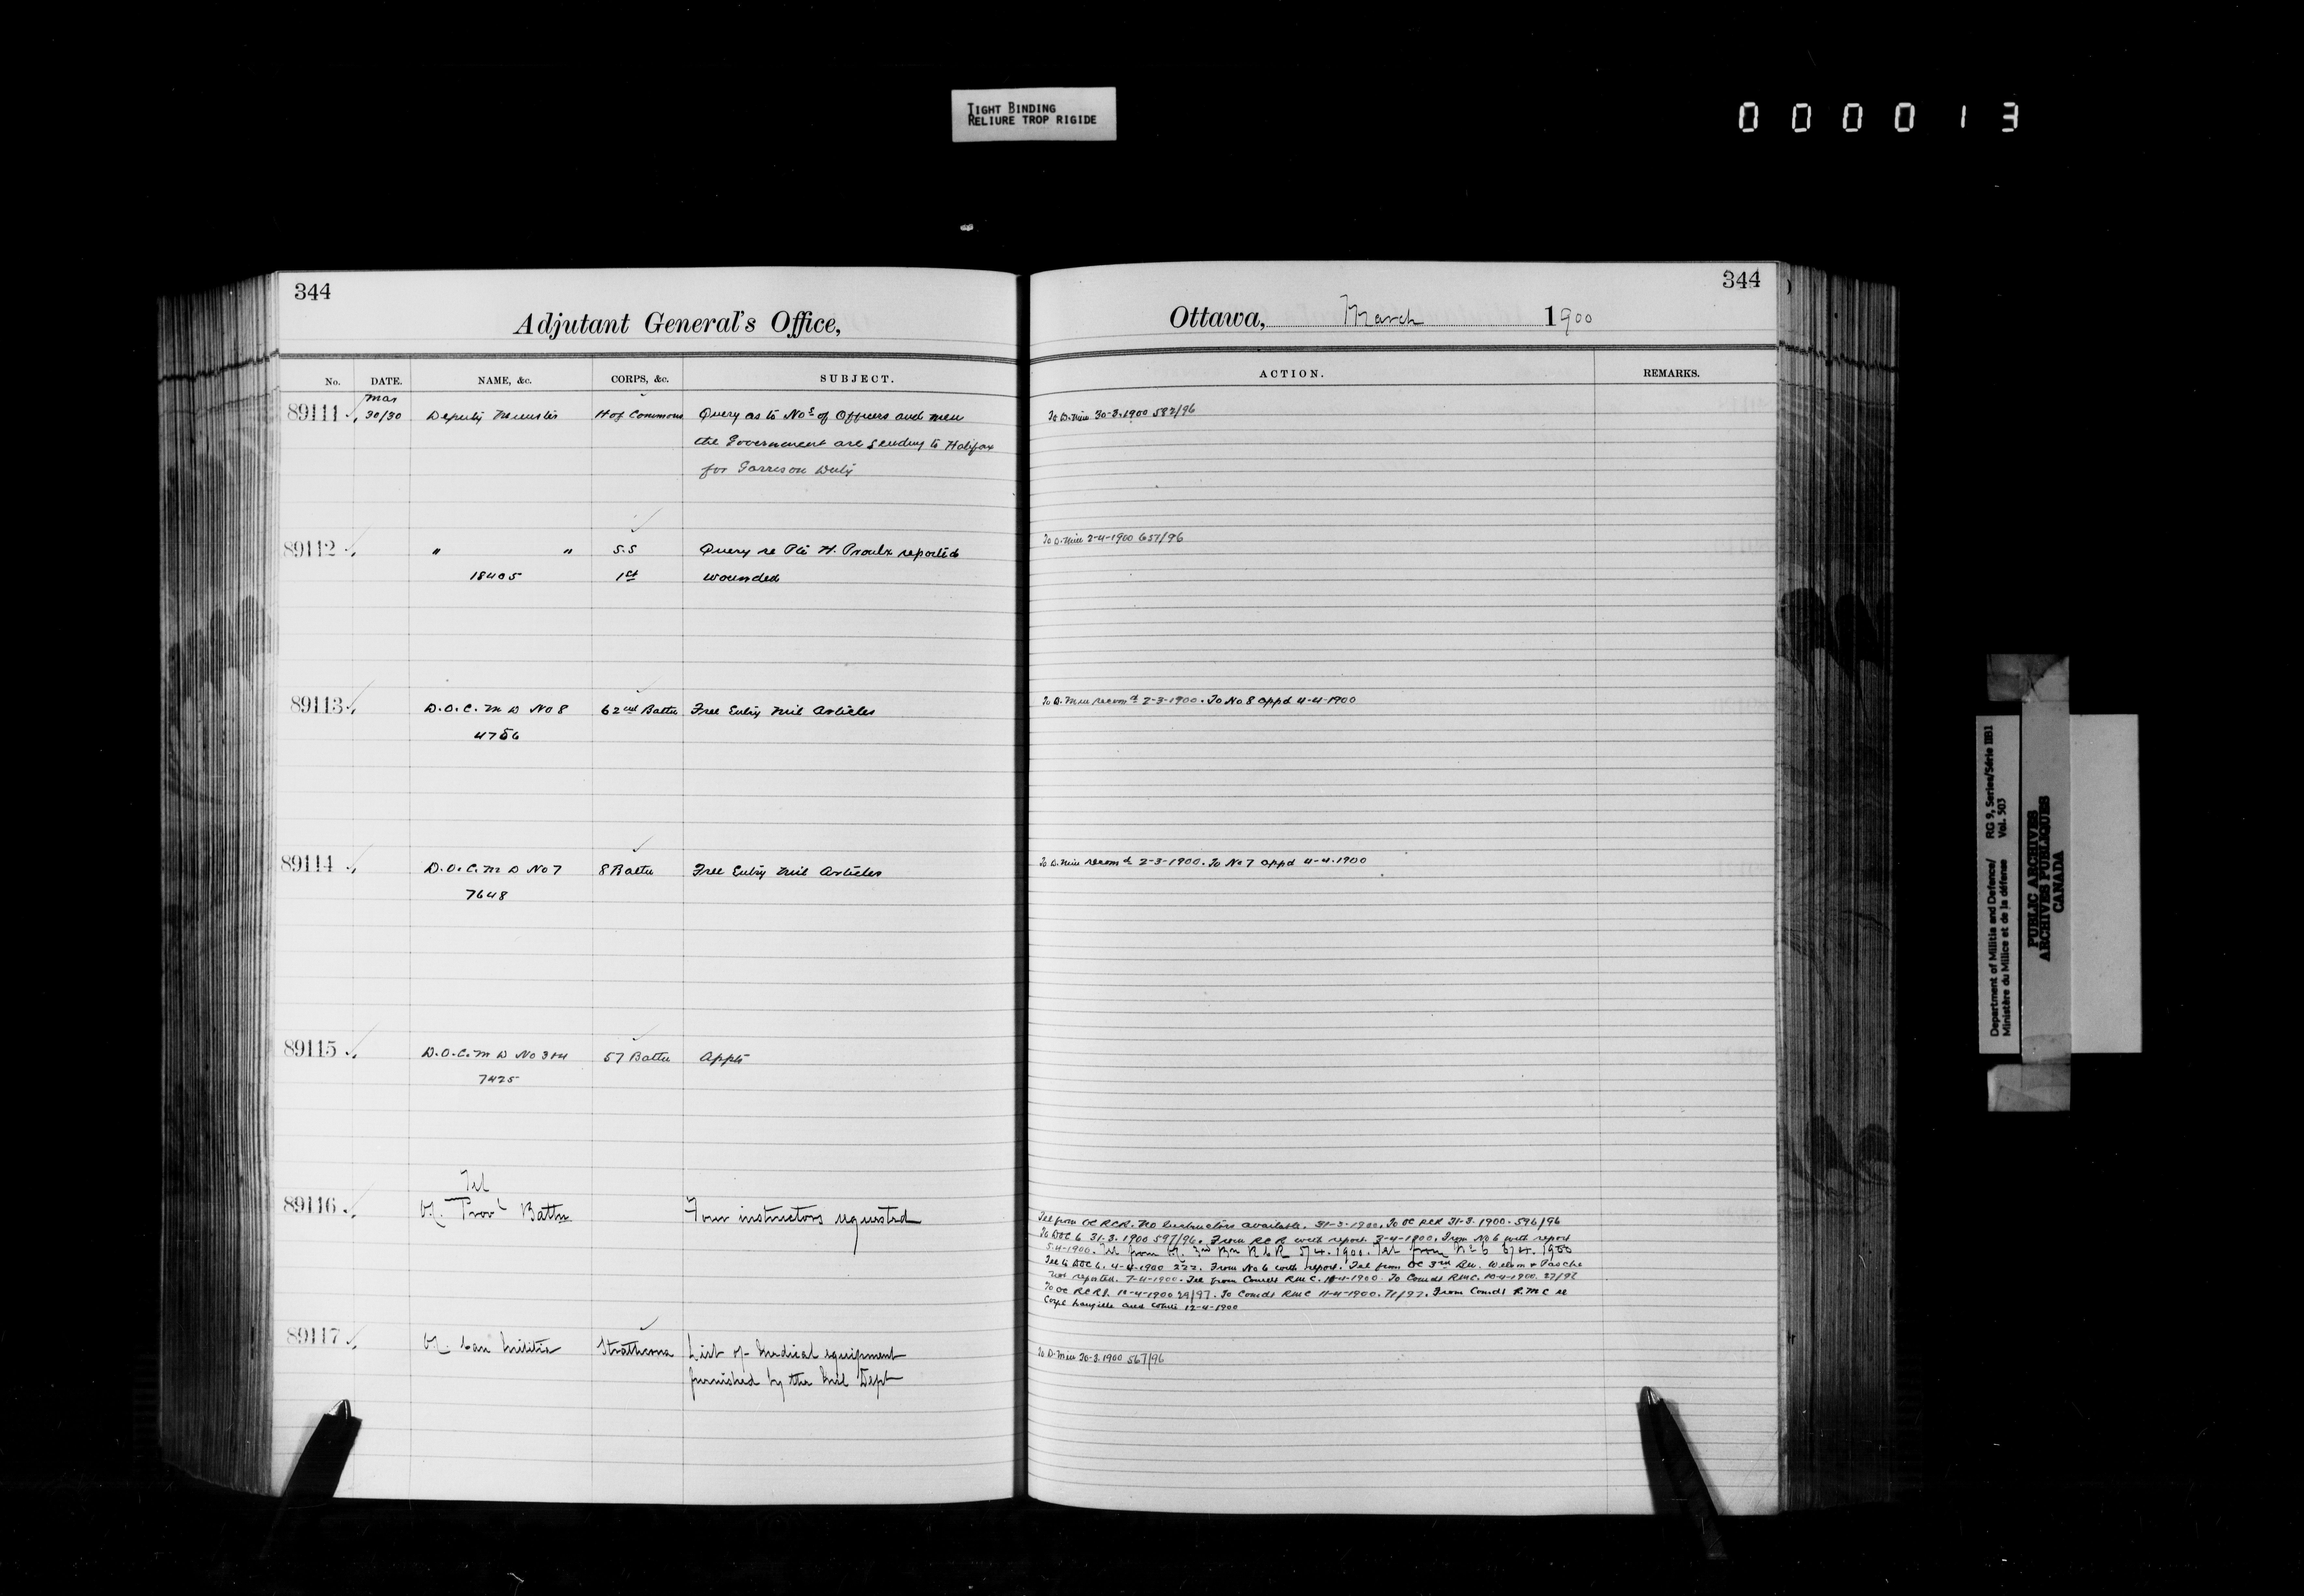 TIGHT BINDING
RELIURE TROP RIGIDE
000013
344
Adjutant General's Office,
No. DATE. NAME, &c. CORPS, &c. SUBJECT.
Mar
89111 30/30 Deputy Minister H of Commons Query as to Nos of Officers and men
the Government are sending to Halifax
for Garrison Duty
89112 " " S.S Query re Pte H. Proulx reported
18405 1st wounded
89113 D.O.C. M D No 8 62nd Battn Free Entry Mil Articles
4756
89114 D.O.C. M D No 7 8 Battn Free Entry Mil Articles
7648
89115 D.O.C. M D No 3+4 57 Battn Appts
7425
Tel
89116 OC. Provl Battn Four instructors requested
89117 OC. Can Militia Strathcona List of Medical equipment
furnished by the Mil Dept
344
Ottawa, March 1900
ACTION. REMARKS.
To D. Min 30-3-1900 582/96
To D. Min 2-4-1900 657/96
To D. Min recomd 2-3-1900. To No 8 appd 4-4-1900
To D. Min recomd 2-3-1900. To No 7 appd 4-4-1900
Tel from OC RCR. No Instructors available. 31-3-1900. To OC RCR 31-3-1900. 596/96
To DOC 6 31-3-1900 597/96. From RCR with report 3-4-1900. From No 6 with report
5-4-1900. Tel from OC. 3rd Bn RCR 5/4.1900. Tel from No 6 6/4.1900
Tel to DOC 6. 4-4-1900 222. From No 6 with report. Tel from OC 3rd Bn. Wilson +
not reported. 7-4-1900. Tel from Comdt RMC. 10-4-1900. To Comdt RMC. 10-4-1900. 27/97
To OC RCRI. 10-4-1900 29/97. To Comdt RMC 11-4-1900. 71/97. From Comdt R.M.C re
Corpl and 12-4-1900
To D. Min 30-3-1900 567/96
Department of Militia and Defence/ RG 9, Series/Série IIB1
Ministère du Milice et de la défense Vol. 503
PUBLIC ARCHIVES
ARCHIVES PUBLIQUES
CANADA